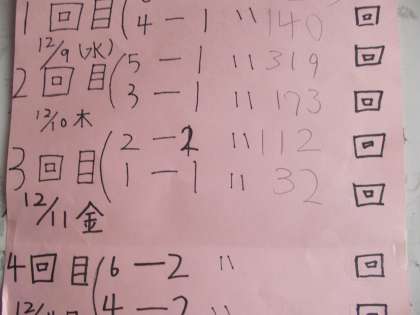 1回目(4－1 〃140 回
12/9(水)
5－1 〃319 回
2回目(3－1 〃173 回
12/10木
2－2 〃112 回
3回目(1－1 〃32 回
12/11金
4回目(6－2 〃 回
4－2 〃 回